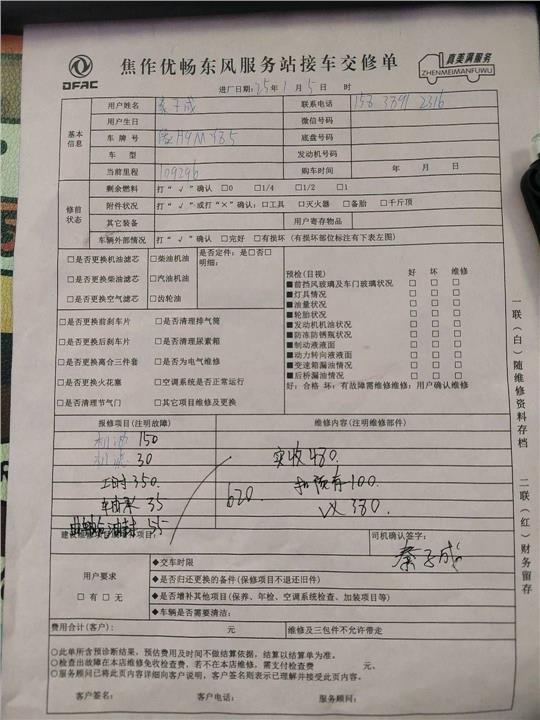 DFAC
焦作优畅东风服务站接车交修单
真美满服务
ZHENMEIMANFUWU
进厂日期:25年1月5日 时
基本信息
用户姓名 秦子成 联系电话
用户生日 微信号码
车牌号 底盘号码
车 型 发动机号码
当前里程 109296 购车时间 年 月 日
修前状态
剩余燃料 打“√”确认 □0 □1/4 □1/2 □1
附件状况 打“√”或打“×”确认:□工具 □灭火器 □备胎 □千斤顶
其它装备 用户寄存物品
车辆外部情况 打“√”确认 □完好 □有损坏(有损坏部位标注有下表左图)
□是否更换机油滤芯 □柴油机油 是否定件:是□否□
明细:
□是否更换柴油滤芯 □汽油机油
□是否更换空气滤芯 □齿轮油
预检(目视) 好 坏 维修
■前挡风玻璃及车门玻璃状况 □ □ □
■灯具情况 □ □ □
■油量状况 □ □ □
■轮胎状况 □ □ □
■发动机机油状况 □ □ □
■防冻防锈瓶状况 □ □ □
■制动液液面 □ □ □
■动力转向液液面 □ □ □
■变速箱漏油情况 □ □ □
■后桥漏油情况 □ □ □
好:合格 坏:有故障需维修维修:用户确认维修
□是否更换前刹车片 □是否清理排气筒
□是否更换后刹车片 □是否清理尿素箱
□是否更换离合三件套 □是否为电气维修
□是否更换火花塞 □空调系统是否正常运行
□是否清理节气门 □其它项目维修及更换
报修项目(注明故障) 维修内容(注明维修部件)
机油 150
机滤 30
工时 350.
35
油封 55
620.
实收480.
100.
380.
司机确认签字:
秦子成
用户要求
□有 □无
◆交车时限
◆是否归还更换的备件(保修项目不退还旧件)
◆是否增补其他项目(保养、年检、空调系统检查、加装项目等)
◆车辆是否需要清洁:
费用合计(客户): 元 维修及三包件不允许带走
○此单所含预诊断结果,预估费用及时间不做结算依据,结算以结算单为准。
○检查出故障在本店维修免收检查费,若不在本店维修,需支付检查费 元,
○服务顾问已将此页内容详细向客户说明,客户签名则表示已理解并接受此页内容。
客户签名: 客户电话: 服务顾问:
一联(白)随维修资料存档
二联(红)财务留存